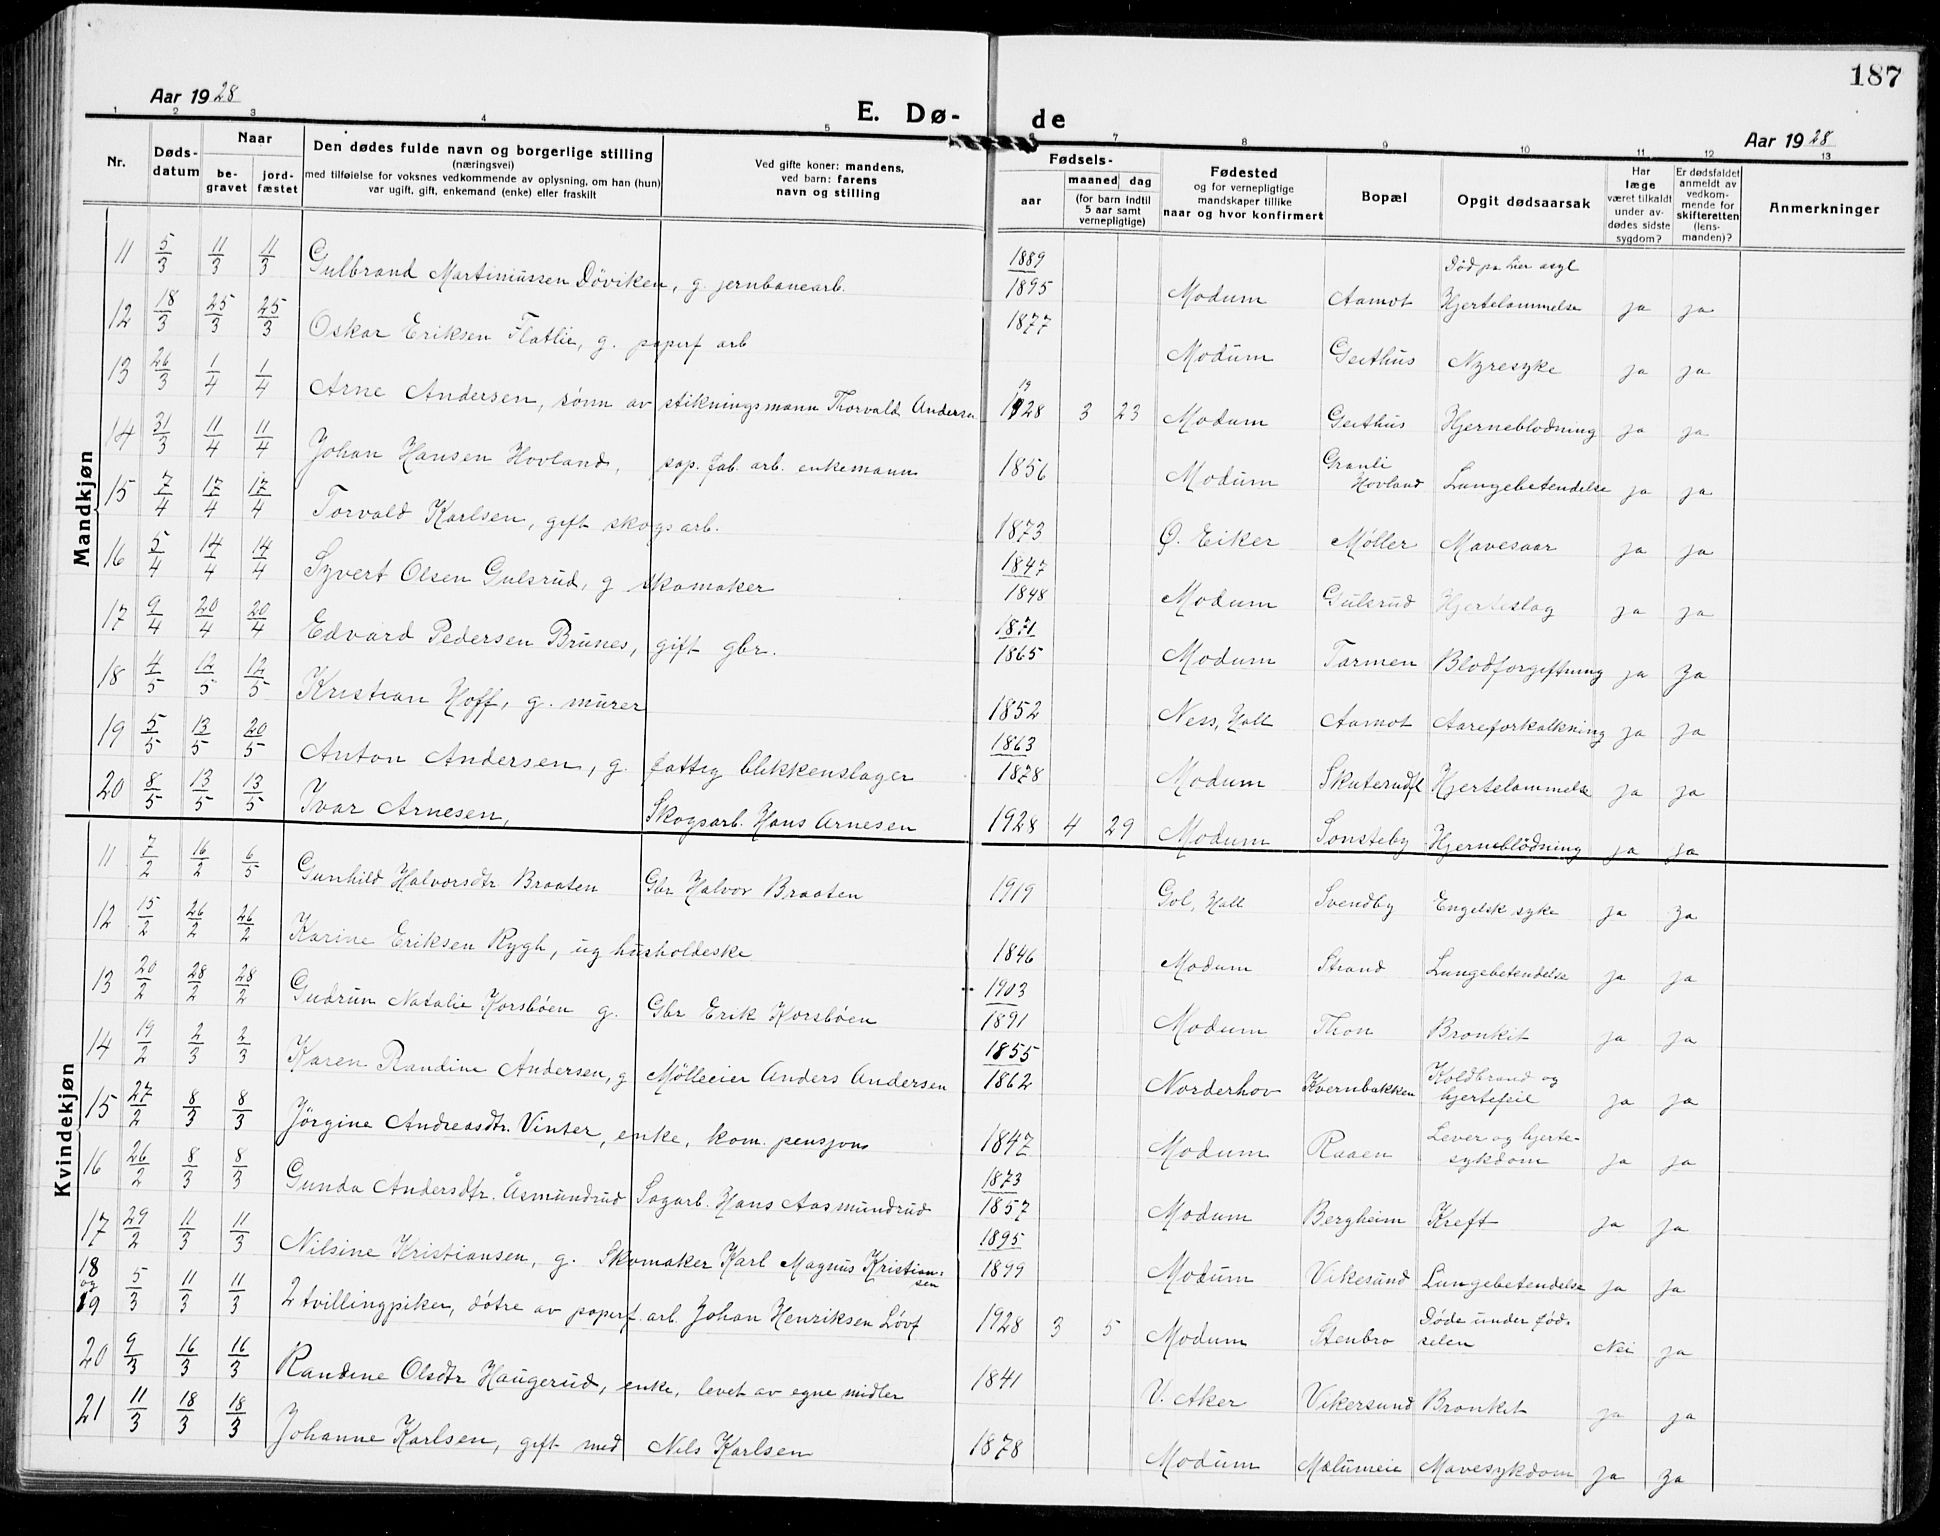 187
Aar 1928
E. Dø-
de
Aar 1928
1 2 3 4 5 6 7 8 9 10 11 12 13
Nr.
Døds-
datum
Naar
be-
gravet
jord-
fæstet
Den dødes fulde navn og borgerlige stilling
(næringsvei)
med tilføielse for voksnes vedkommende av oplysning, om han (hun)
var ugift, gift, enkemand (enke) eller fraskilt
Ved gifte koner: mandens,
ved barn: farens
navn og stilling
Fødsels-
aar
maaned dag
(for barn indtil
5 aar samt
vernepligtige)
Fødested
og for vernepligtige
mandskaper tillike
naar og hvor konfirmert
Bopæl
Opgit dødsaarsak
Har
læge
været tilkaldt
under av-
dødes sidste
sygdom?
Er dødsfaldet
anmeldt av
vedkom-
mende for
skifteretten
(lens-
manden)?
Anmerkninger
Mandkjøn
11 5/3 11/3 11/3 Gulbrand Martiniussen Døviken, g. jernbanearb. 1889 1895 Modum Aamot Død pa Lier asyl Hjertelammelse ja ja
12 18/3 25/3 25/3 Oskar Eriksen Flatlie, g. paperf arb 1877 Modum Geithus Nyresyke ja ja
13 26/3 1/4 1/4 Arne Andersen, sønn av stikningsmann Thorvald Andersen 1928 3 23 Modum Geithus Hjerneblødning ja ja
14 31/3 11/4 11/4 Johan Hansen Hovland, pap. fab. arb. enkemann 1856 Modum Granli Hovland Lungebetendelse ja ja
15 7/4 17/4 17/4 Torvald Karlsen, gift skogsarb. 1873 Ø. Eiker Møller Mavesaar ja ja
16 5/4 14/4 14/4 Syvert Olsen Gulsrud, g skomaker 1847 1848 Modum Gulsrud Hjerteslag ja ja
17 9/4 20/4 20/4 Edvard Pedersen Brunes, gift gbr. 1871 1865 Modum Tormen Blodforgiftning ja ja
18 4/5 12/5 12/5 Kristian Hoff, g. murer 1852 Ness, Hall Aamot Aareforkalkning ja ja
19 5/5 13/5 20/5 Anton Andersen, g. fattig blikkenslager 1863 1878 Modum Skuterudfl Hjertelammelse ja ja
20 8/5 13/5 13/5 Ivar Arnesen, Skogsarb. Hans Arnesen 1928 4 29 Modum Sønsteby Hjerneblødning ja ja
Kvindekjøn
11 7/2 16/2 6/5 Gunhild Halvorsdtr Braaten Gbr Halvor Braaten 1919 Gol, Hall Svendby Engelsk syke ja ja
12 15/2 26/2 26/2 Karine Eriksen Rygh, ug husholdeske 1846 Modum Strand Lungebetendelse ja ja
13 20/2 28/2 28/2 Gudrun Natalie Korsbøen g. Gbr Erik Korsbøen 1903 1891 Modum Thon Bronkit ja ja
14 19/2 2/3 2/3 Karen Randine Andersen, g Mølleeier Anders Andersen 1855 1862 Norderhov Kvernbakken Koldbrand og hjertefeil ja ja
15 27/2 8/3 8/3 Jørgine Andreasdtr. Vinter, enke, kom. pensjon 1847 Modum Raaen Lever og hjerte-
sykdom ja ja
16 26/2 8/3 8/3 Gunda Andersdtr. Åsmundrud Sagarb. Hans Aasmundrud 1873 1857 Modum Bergheim Kreft ja ja
17 29/2 11/3 11/3 Nilsine Kristiansen, g. Skomaker Karl Magnus Kristian-
sen 1895 1899 Modum Vikesund Lungebetendelse ja ja
18 og 19 5/3 11/3 11/3 2 tvillingpiker, døtre av paperf. arb. Johan Henriksen Løvf 1928 3 5 Modum Stenbro Døde under fød-
selen Nei ja
20 9/3 16/3 16/3 Randine Olsdtr Haugerud, enke, levet av egne midler 1841 V. Aker Vikersund Bronkit ja ja
21 11/3 18/3 18/3 Johanne Karlsen, gift med Nils Karlsen 1878 Modum Mælumeie Mavesykdom ja ja